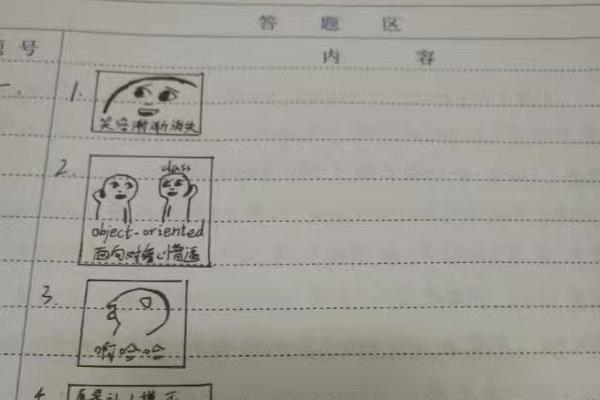 答 题 区
题 号 内 容
一. 1.
笑容渐渐消失
2.
class
object-oriented
面向对象
3.
啊哈哈
4.